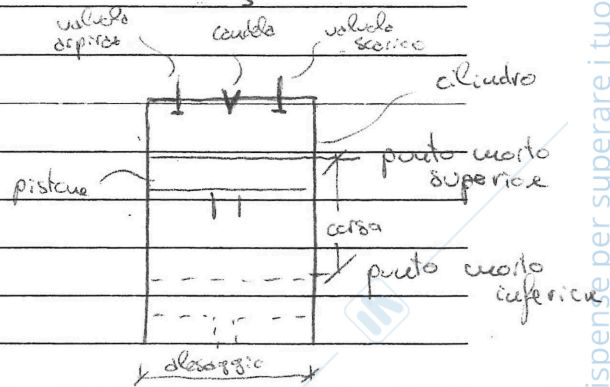 valvola
aspiraz
candela
valvola
scarico
cilindro
pistone
punto morto
superiore
corsa
punto morto
inferiore
alesaggio
ispense per superare i tuo